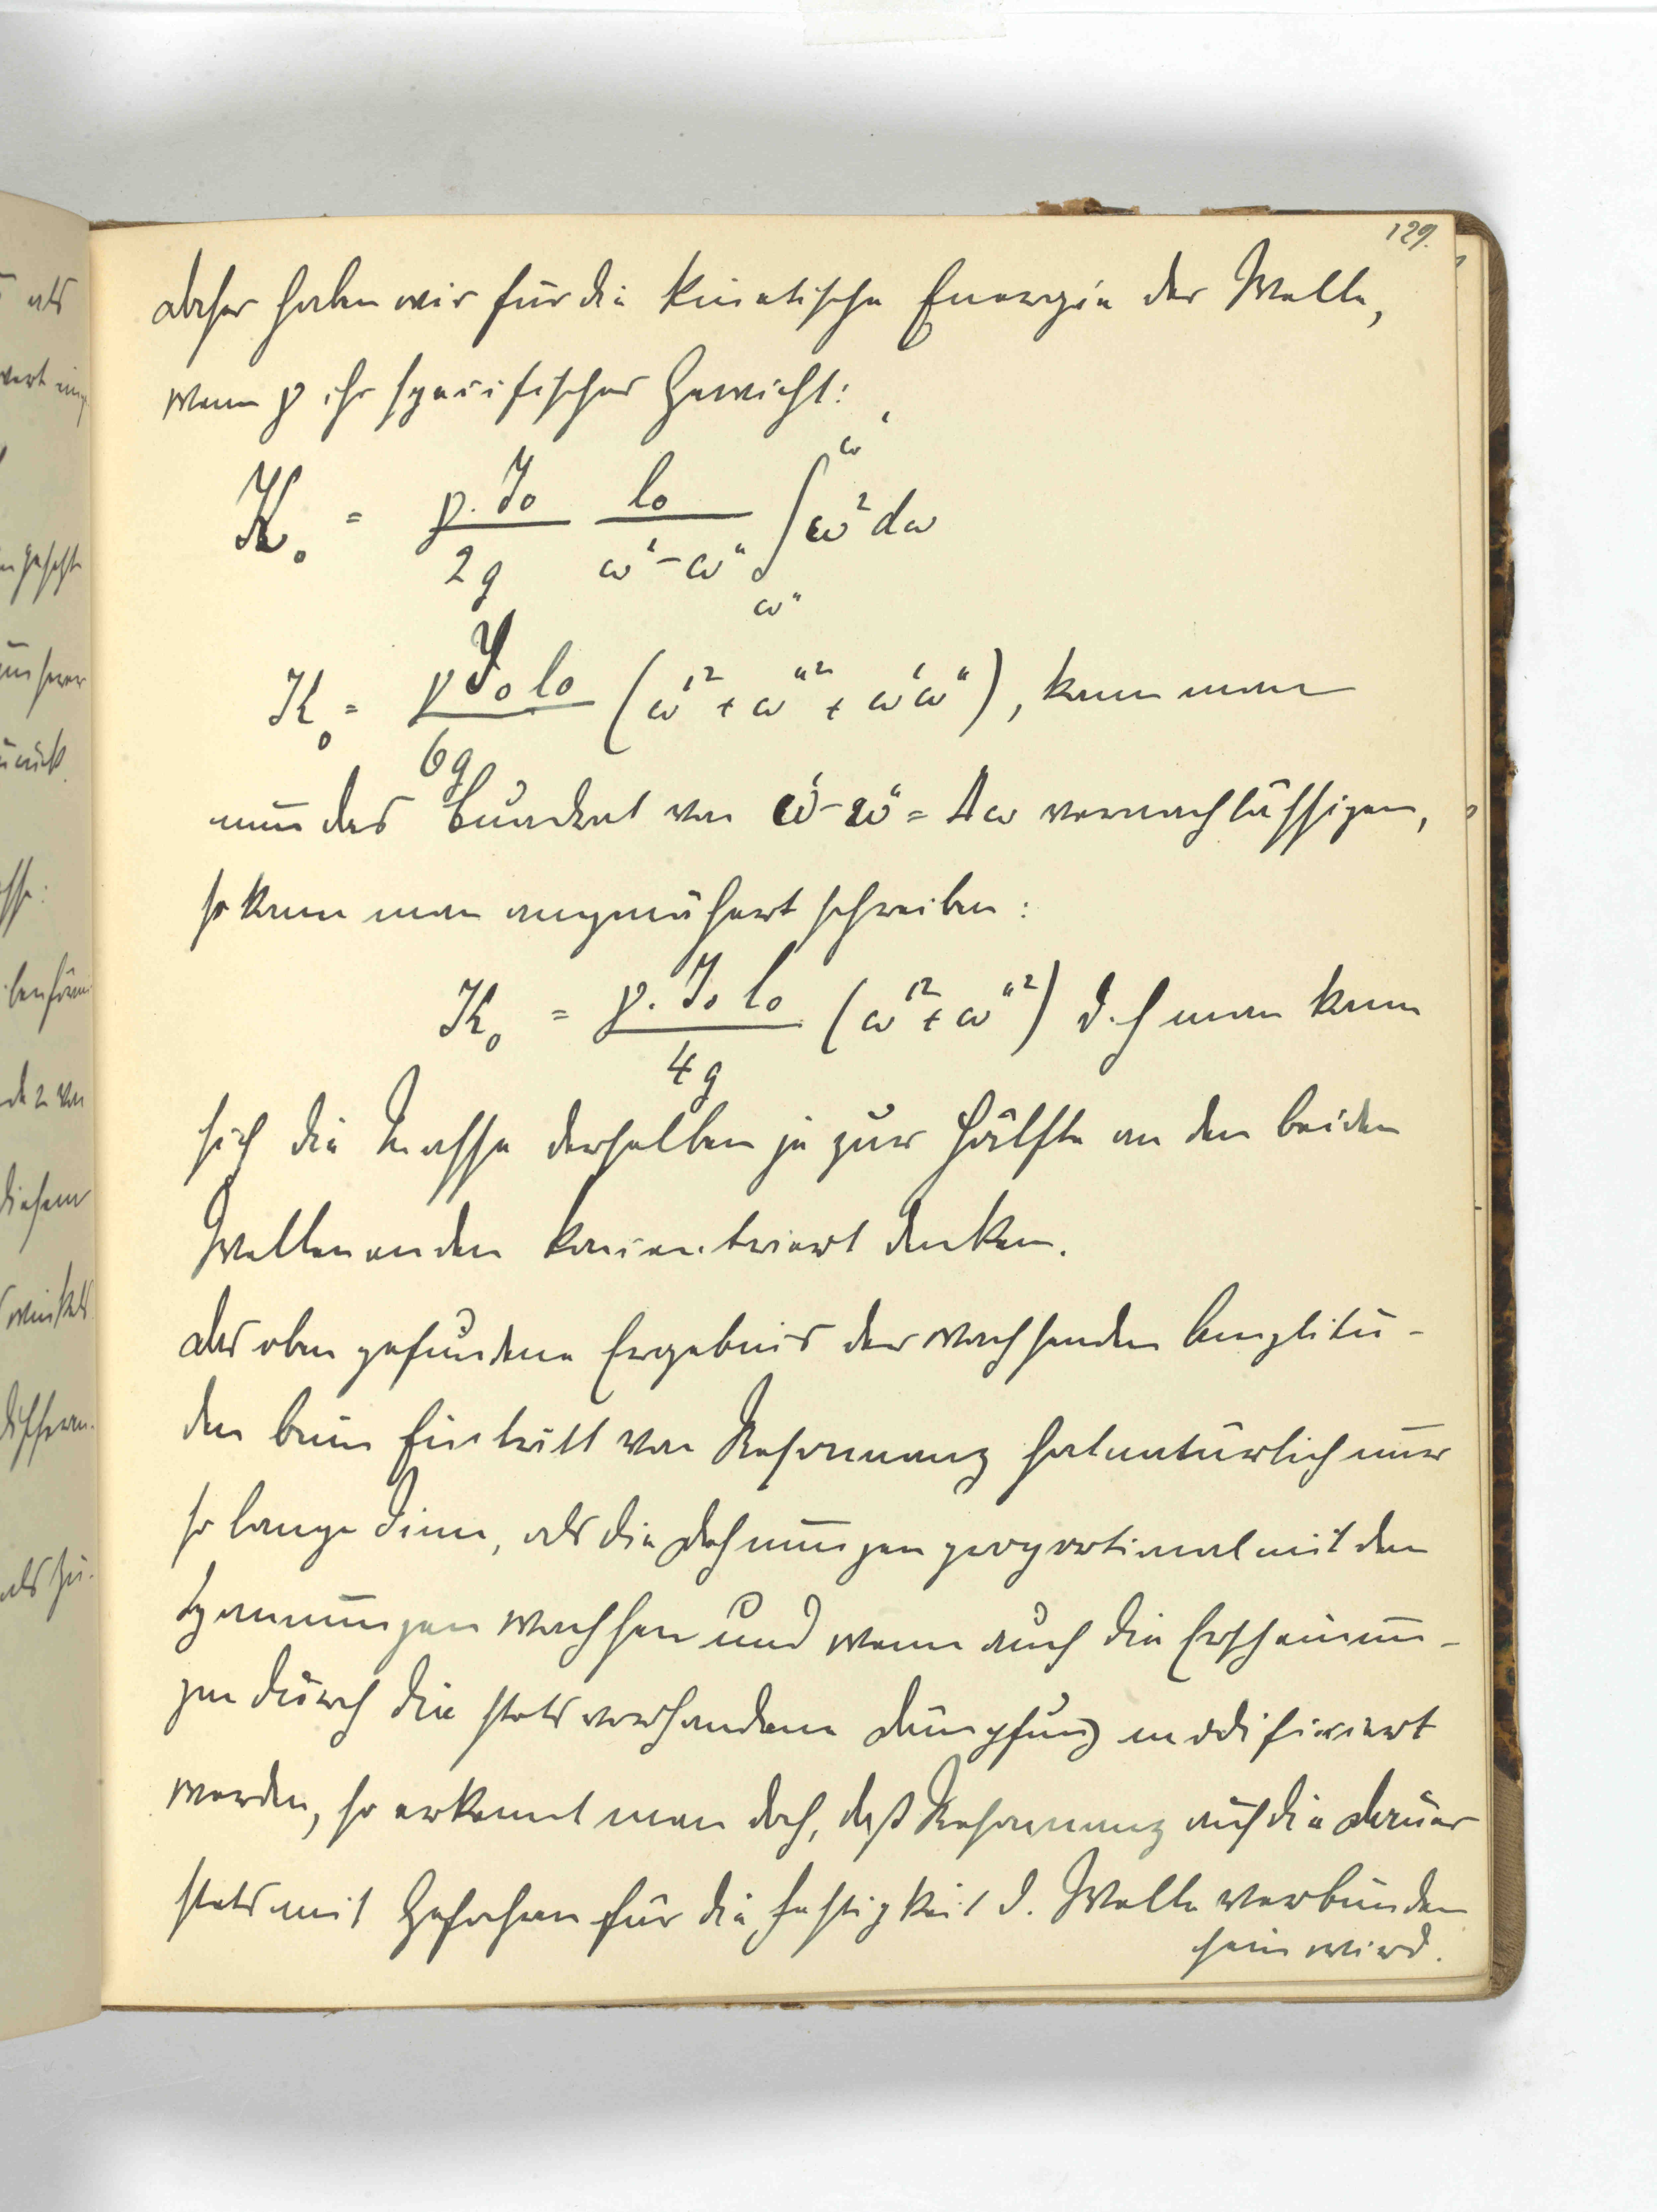 129.
daher haben wir für die kinetische Energie der Welle,
wenn γ ihr specifisches Gewicht:
K₀ = γ. J₀ / 2g · l₀ / (ω' - ω") ∫ ω" ω' ω² dω
K₀ = γ J₀ l₀ / 6g (ω'² + ω"² + ω'ω"), kann man
nun das Quadrat von ω' - ω" = Δω vernachlässigen,
so kann man angenähert schreiben:
K₀ = γ. J₀ l₀ / 4g (ω'² + ω"²) d. h man kann
sich die Masse derselben je zur Hälfte an den beiden
Wellenenden koncentriert denken.
Das oben gefundene Ergebnis der wachsenden Amplitu-
den beim Eintritt von Resonnanz hat natürlich nur
so lange Sinn, als die Dehnungen proportional mit den
Spannungen wachsen und wenn auch die Erscheinun-
gen durch die stets vorhandene Dämpfung modificiert
werden, so erkennt man doch, daß Resonnanz auf die Dauer
stets mit Gefahren für die Festigkeit d. Welle verbunden
sein wird.
als